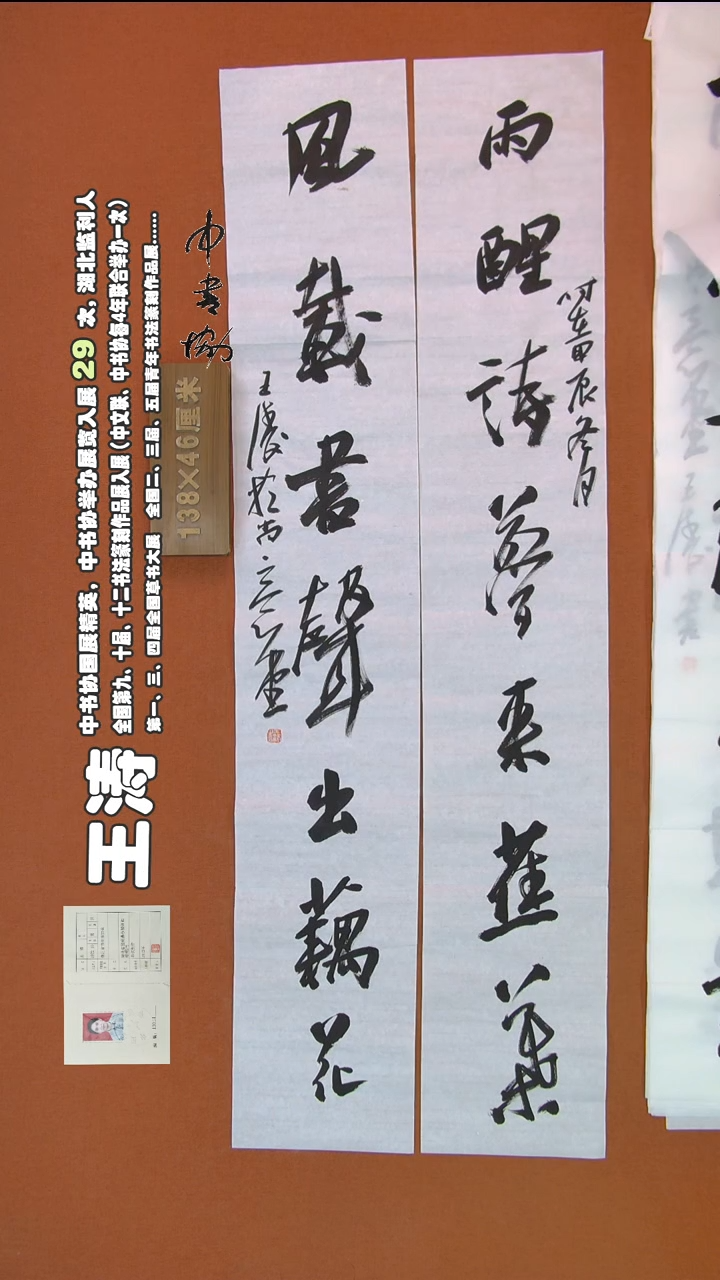 雨醒詩夢來蕉葉
時在甲辰冬月
風載書聲出藕花
王濤於尚意堂
中书协
138×46厘米
中书协国展精英，中书协举办展览入展 29 次，湖北监利人
全国第九、十届、十二书法篆刻作品展入展（中文联、中书协每4年联合举办一次）
第一、三、四届全国草书大展 全国二、三届、五届青年书法篆刻作品展......
王涛